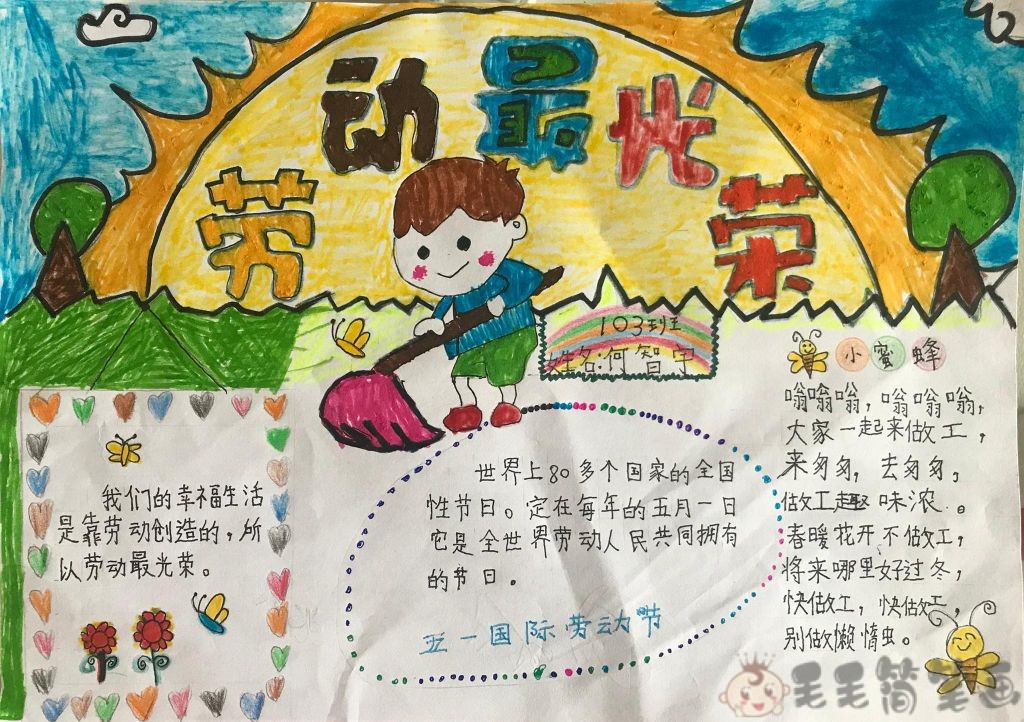 劳动最光荣
103班
姓名:何智宇
我们的幸福生活
是靠劳动创造的,所
以劳动最光荣。
世界上80多个国家的全国
性节日。定在每年的五月一日
它是全世界劳动人民共同拥有
的节日。
五一国际劳动节
小蜜蜂
嗡嗡嗡,嗡嗡嗡,
大家一起来做工,
来匆匆,去匆匆,
做工趣味浓。
春暖花开不做工,
将来哪里好过冬,
快做工,快做工,
别做懒惰虫。
毛毛简笔画